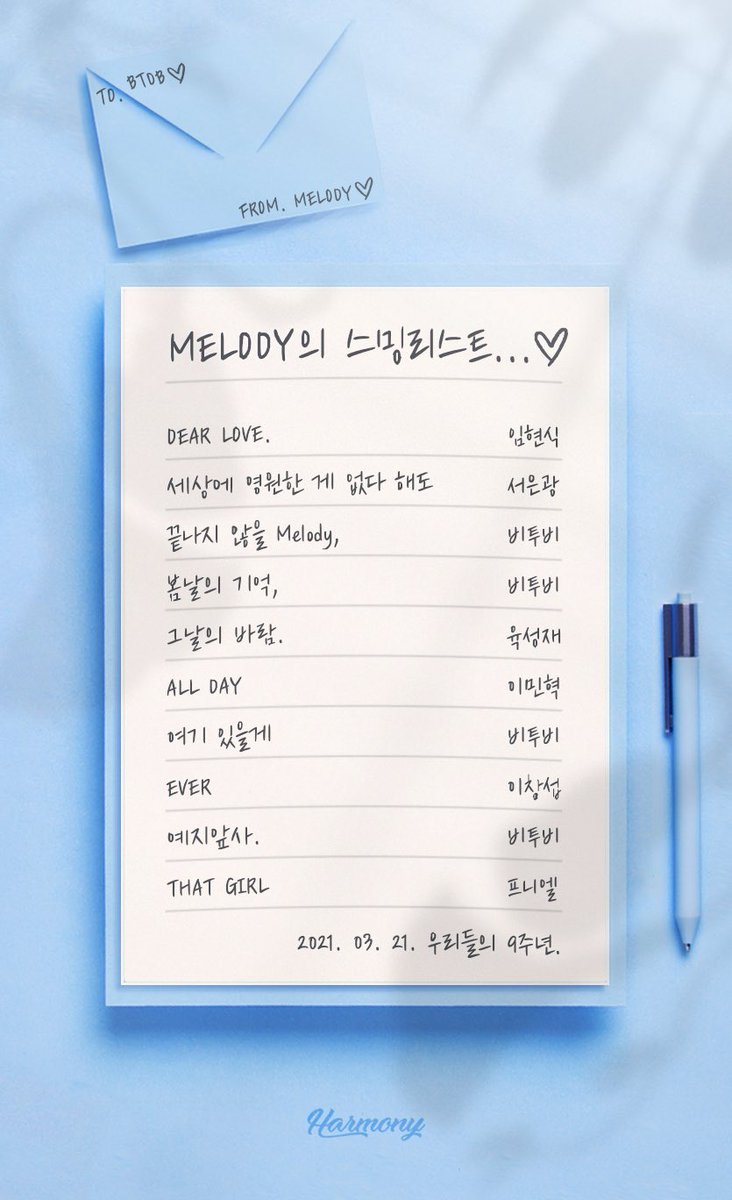 TO. BTOB♡
FROM. MELODY♡
MELODY의 스밍리스트...♡
DEAR LOVE. 임현식
세상에 영원한 게 없다 해도 서은광
끝나지 않을 Melody, 비투비
봄날의 기억, 비투비
그날의 바람. 육성재
ALL DAY 이민혁
여기 있을게 비투비
EVER 이창섭
예지앞사. 비투비
THAT GIRL 프니엘
2021. 03. 21. 우리들의 9주년.
Harmony